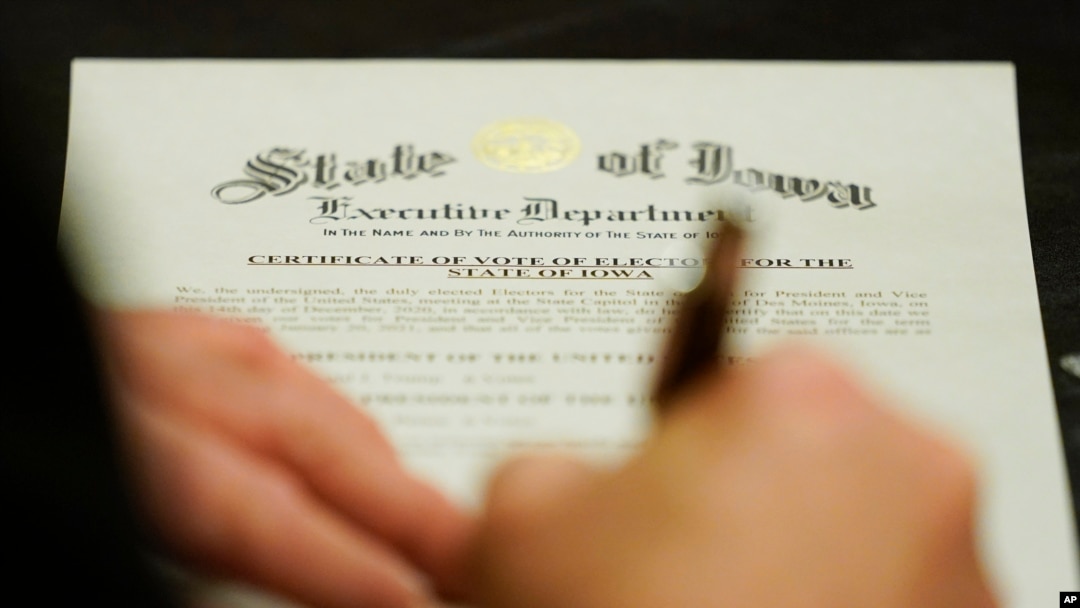 State of Iowa
Executive Department
IN THE NAME AND BY THE AUTHORITY OF THE STATE OF
CERTIFICATE OF VOTE OF ELECTO FOR THE
STATE OF IOWA
We, the undersigned, the duly elected Electors for the State for President and Vice
President of the United States, meeting at the State Capitol in the of Des Moines, Iowa, on
this 14th day of December, 2020, in accordance with law, do certify that on this date we
given our votes for President and Vice President of States for the term
January 20, 2021, and that all of the votes given for the said offices are as
PRESIDENT OF THE UNITED
AP